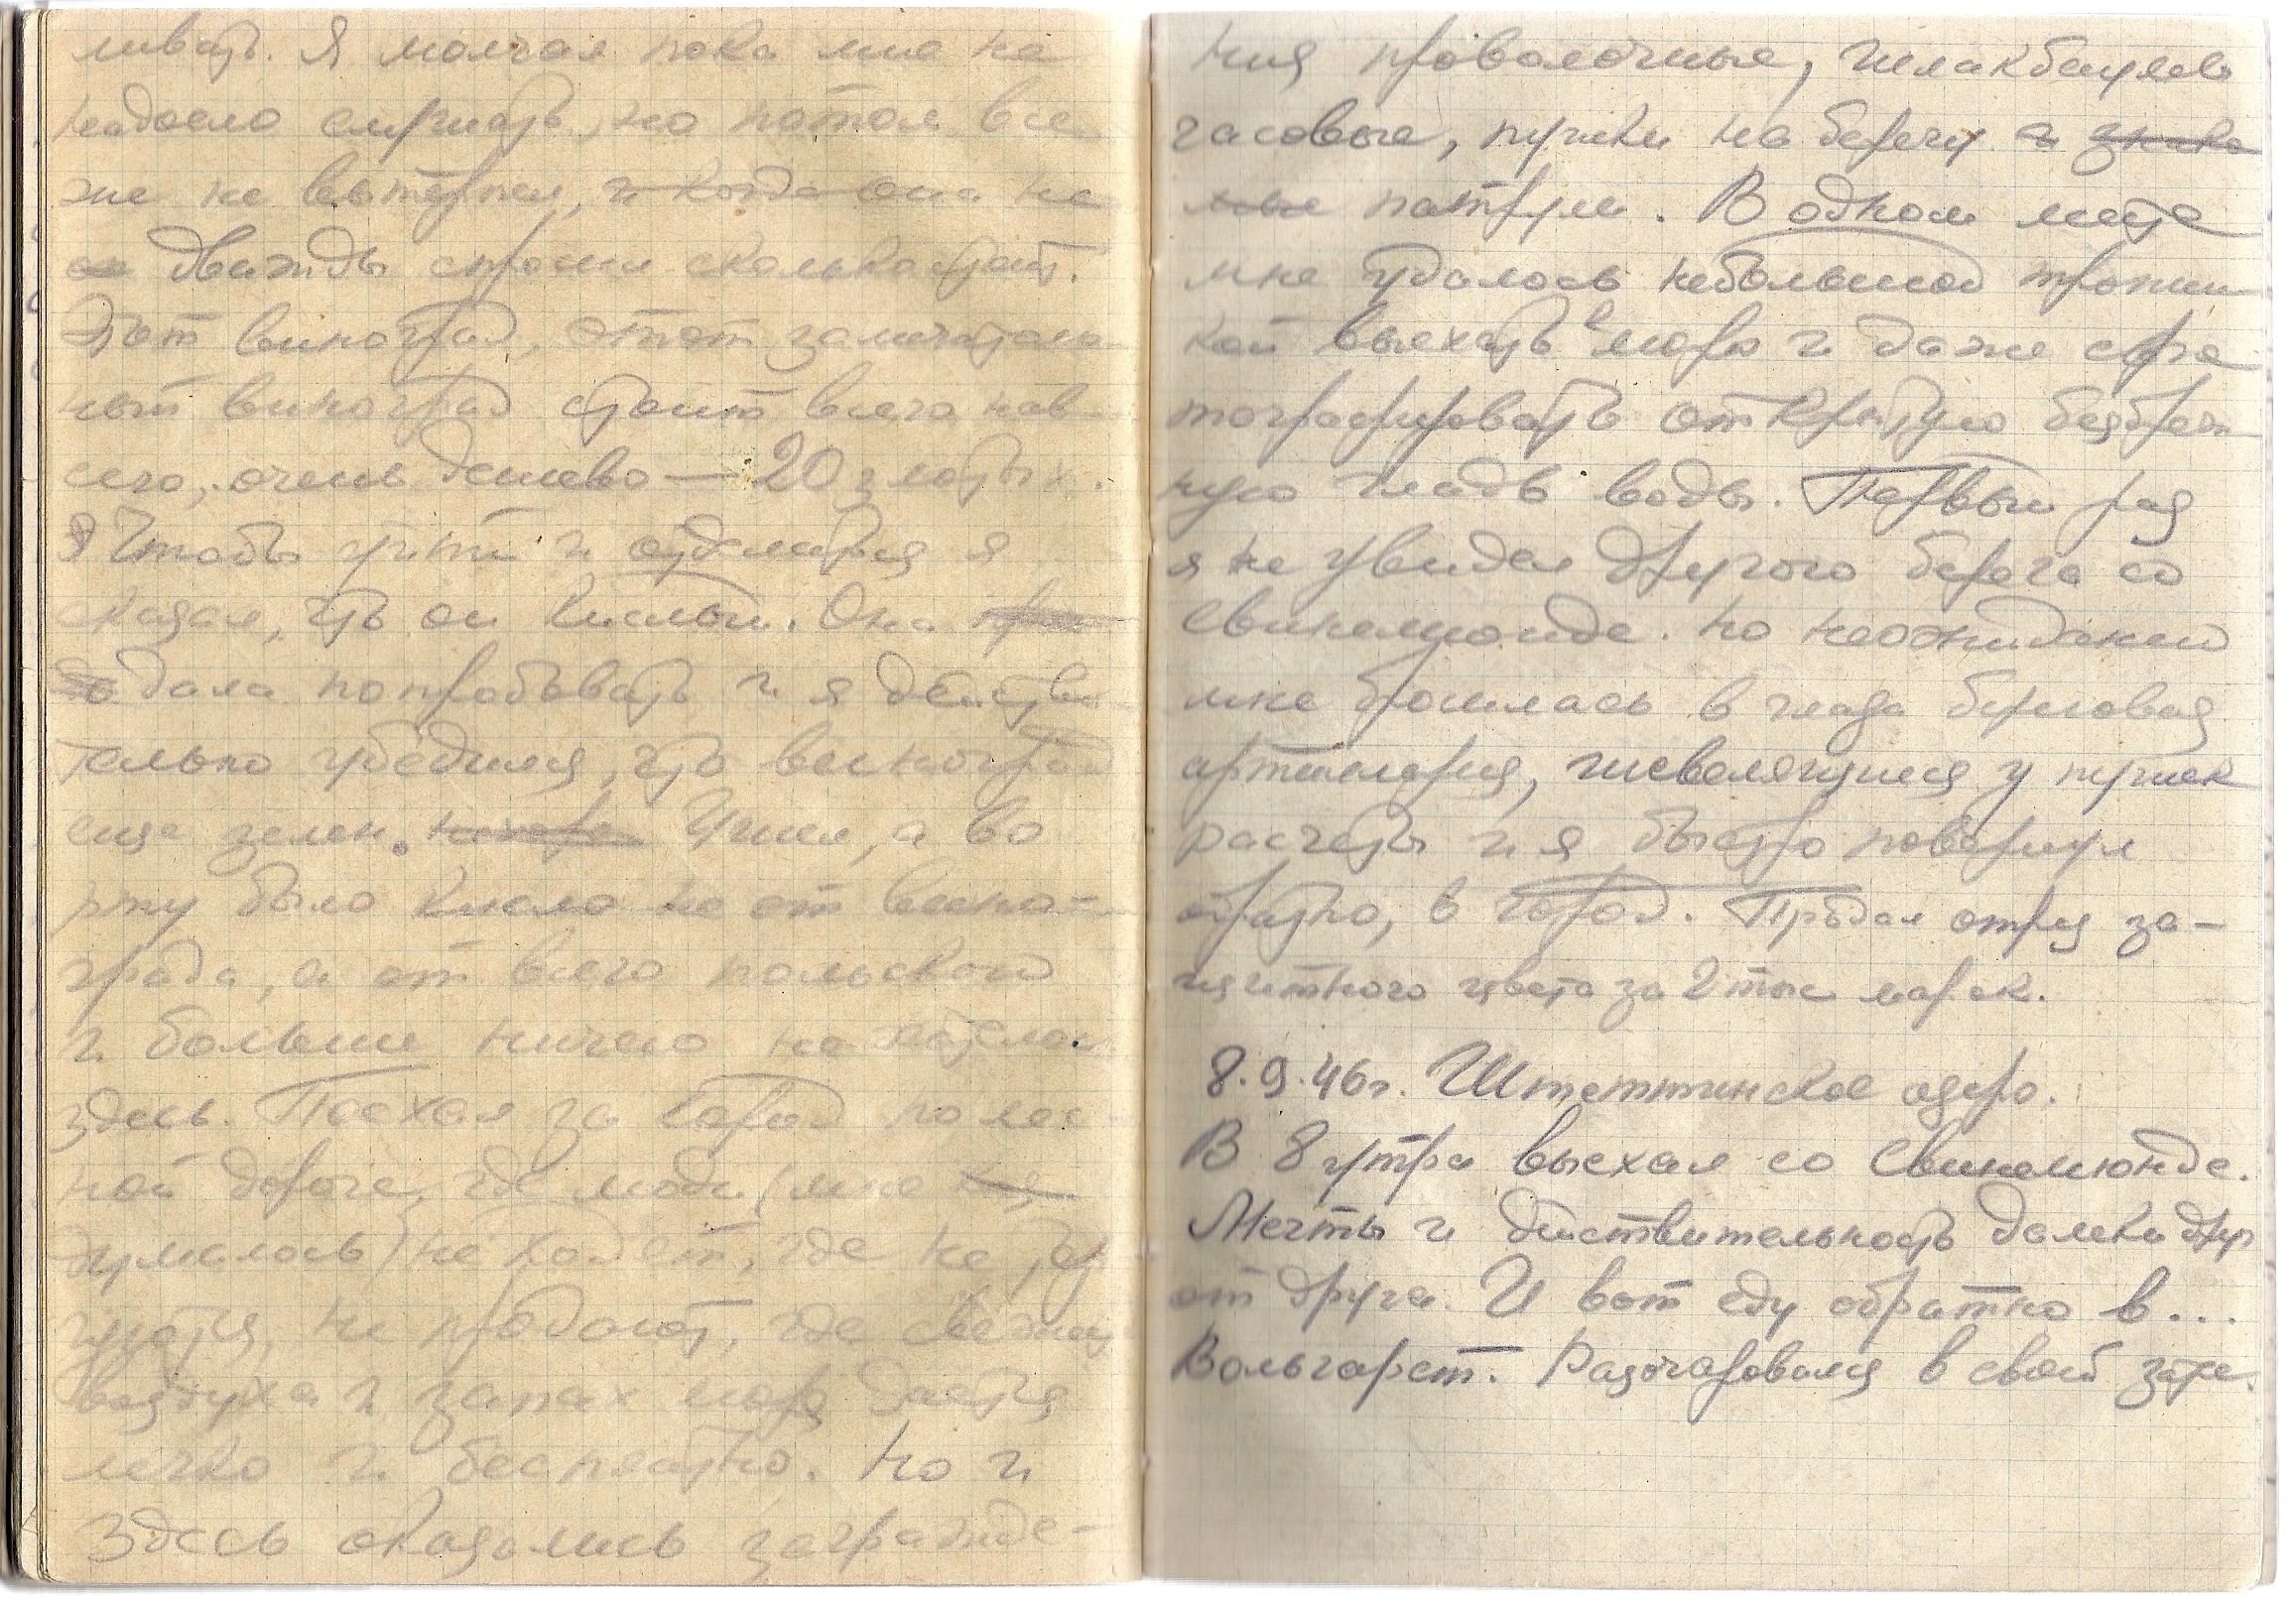 ливать. Я молчал пока мне не
надоело слушать, но потом все
же не вытерпел, и когда она не
дважды спросил сколько стоит.
Этот виноград, этот замечатель
ный виноград стоит всего нав
сего, очень дешево — 20 злотых.
Чтобы уйти и отделаться я
сказал, что он кислый. Она
дала попробывать и я действи
тельно убедился, что виноград
еще зелен. Ушел, а во
рту было кисло не от вино-
града, а от всего польского
и больше ничего не хотелось
здесь. Поехал за город по лес
ной дороге, где люди (мне
думалось) не ходят, где не тор
гуются, не продают, где свежий
воздуха и запах моря дается
легко и бесплатно. Но и
здесь оказались загражде-
ния проволочные, шлакбаумов
часовые, пушки на берегу и
патрули. В одном месте
мне удалось небольшой тропин
кой выехать к морю и даже сфо
тографировать открытую безбреж
ную гладь воды. Первый раз
я не увидел другого берега со
Свинемюнде. Но неожиданно
мне бросилась в глаза береговая
артиллерия, шевелящиеся у пушек
расчеты и я быстро повернул
обратно, в город. Продал отрез за-
щитного цвета за 2 тыс марок.
8.9.46г. Штеттинское озеро.
В 8 утра выехал со Свинемюнде.
Мечты и действительность далеки друг
от друга. И вот еду обратно в...
Вольгарст. Разочаровался в своей зате.